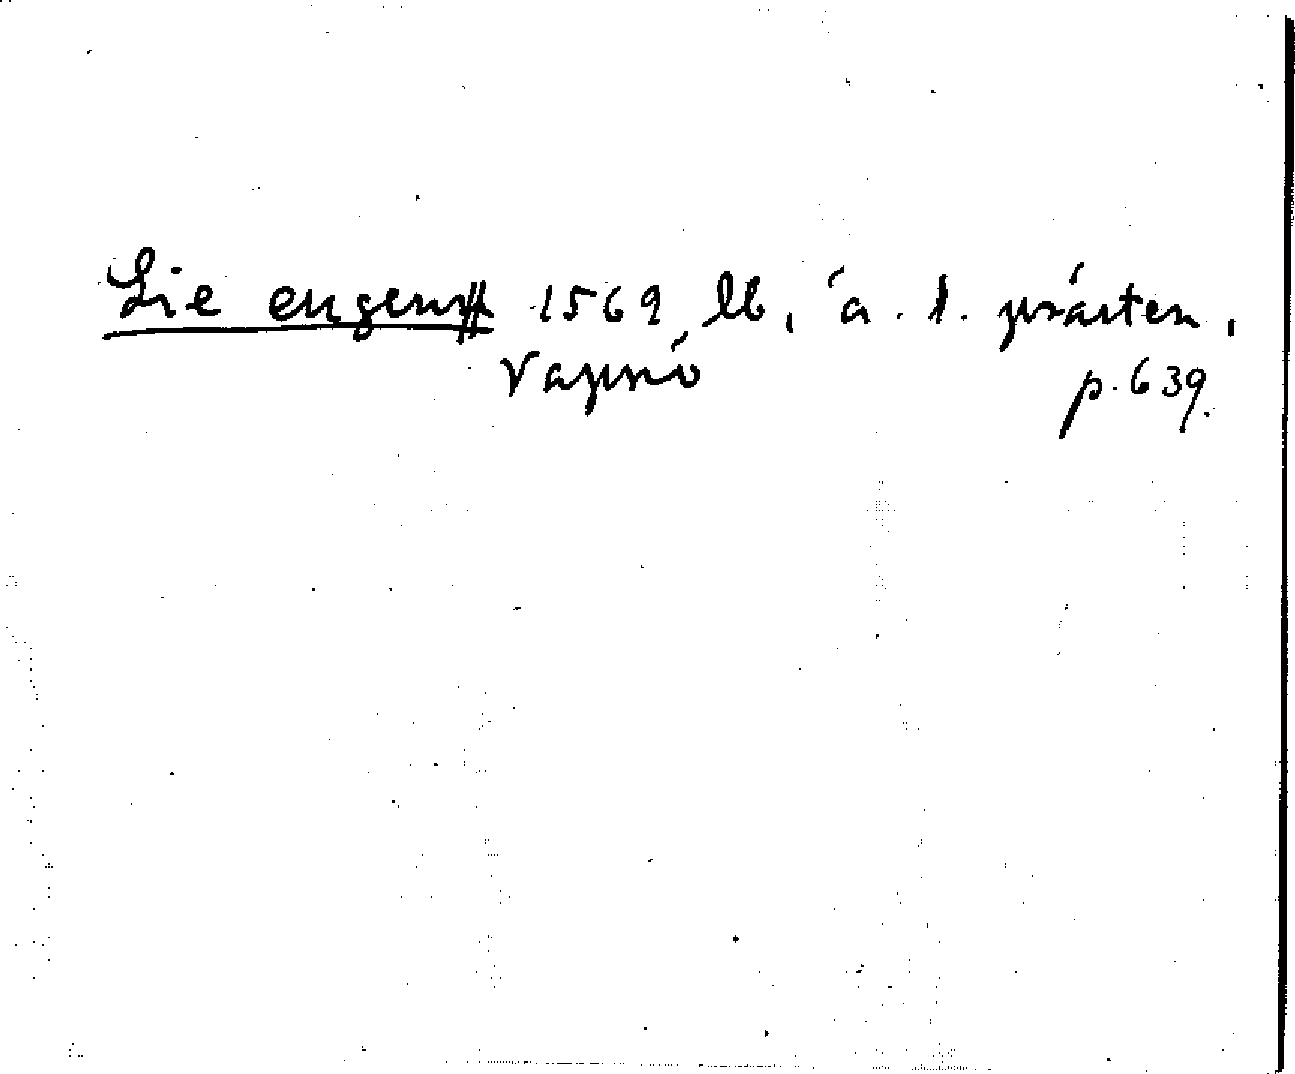 Lie engen# 1569 lb, å. 1. prästen.
Vapnö p. 639.